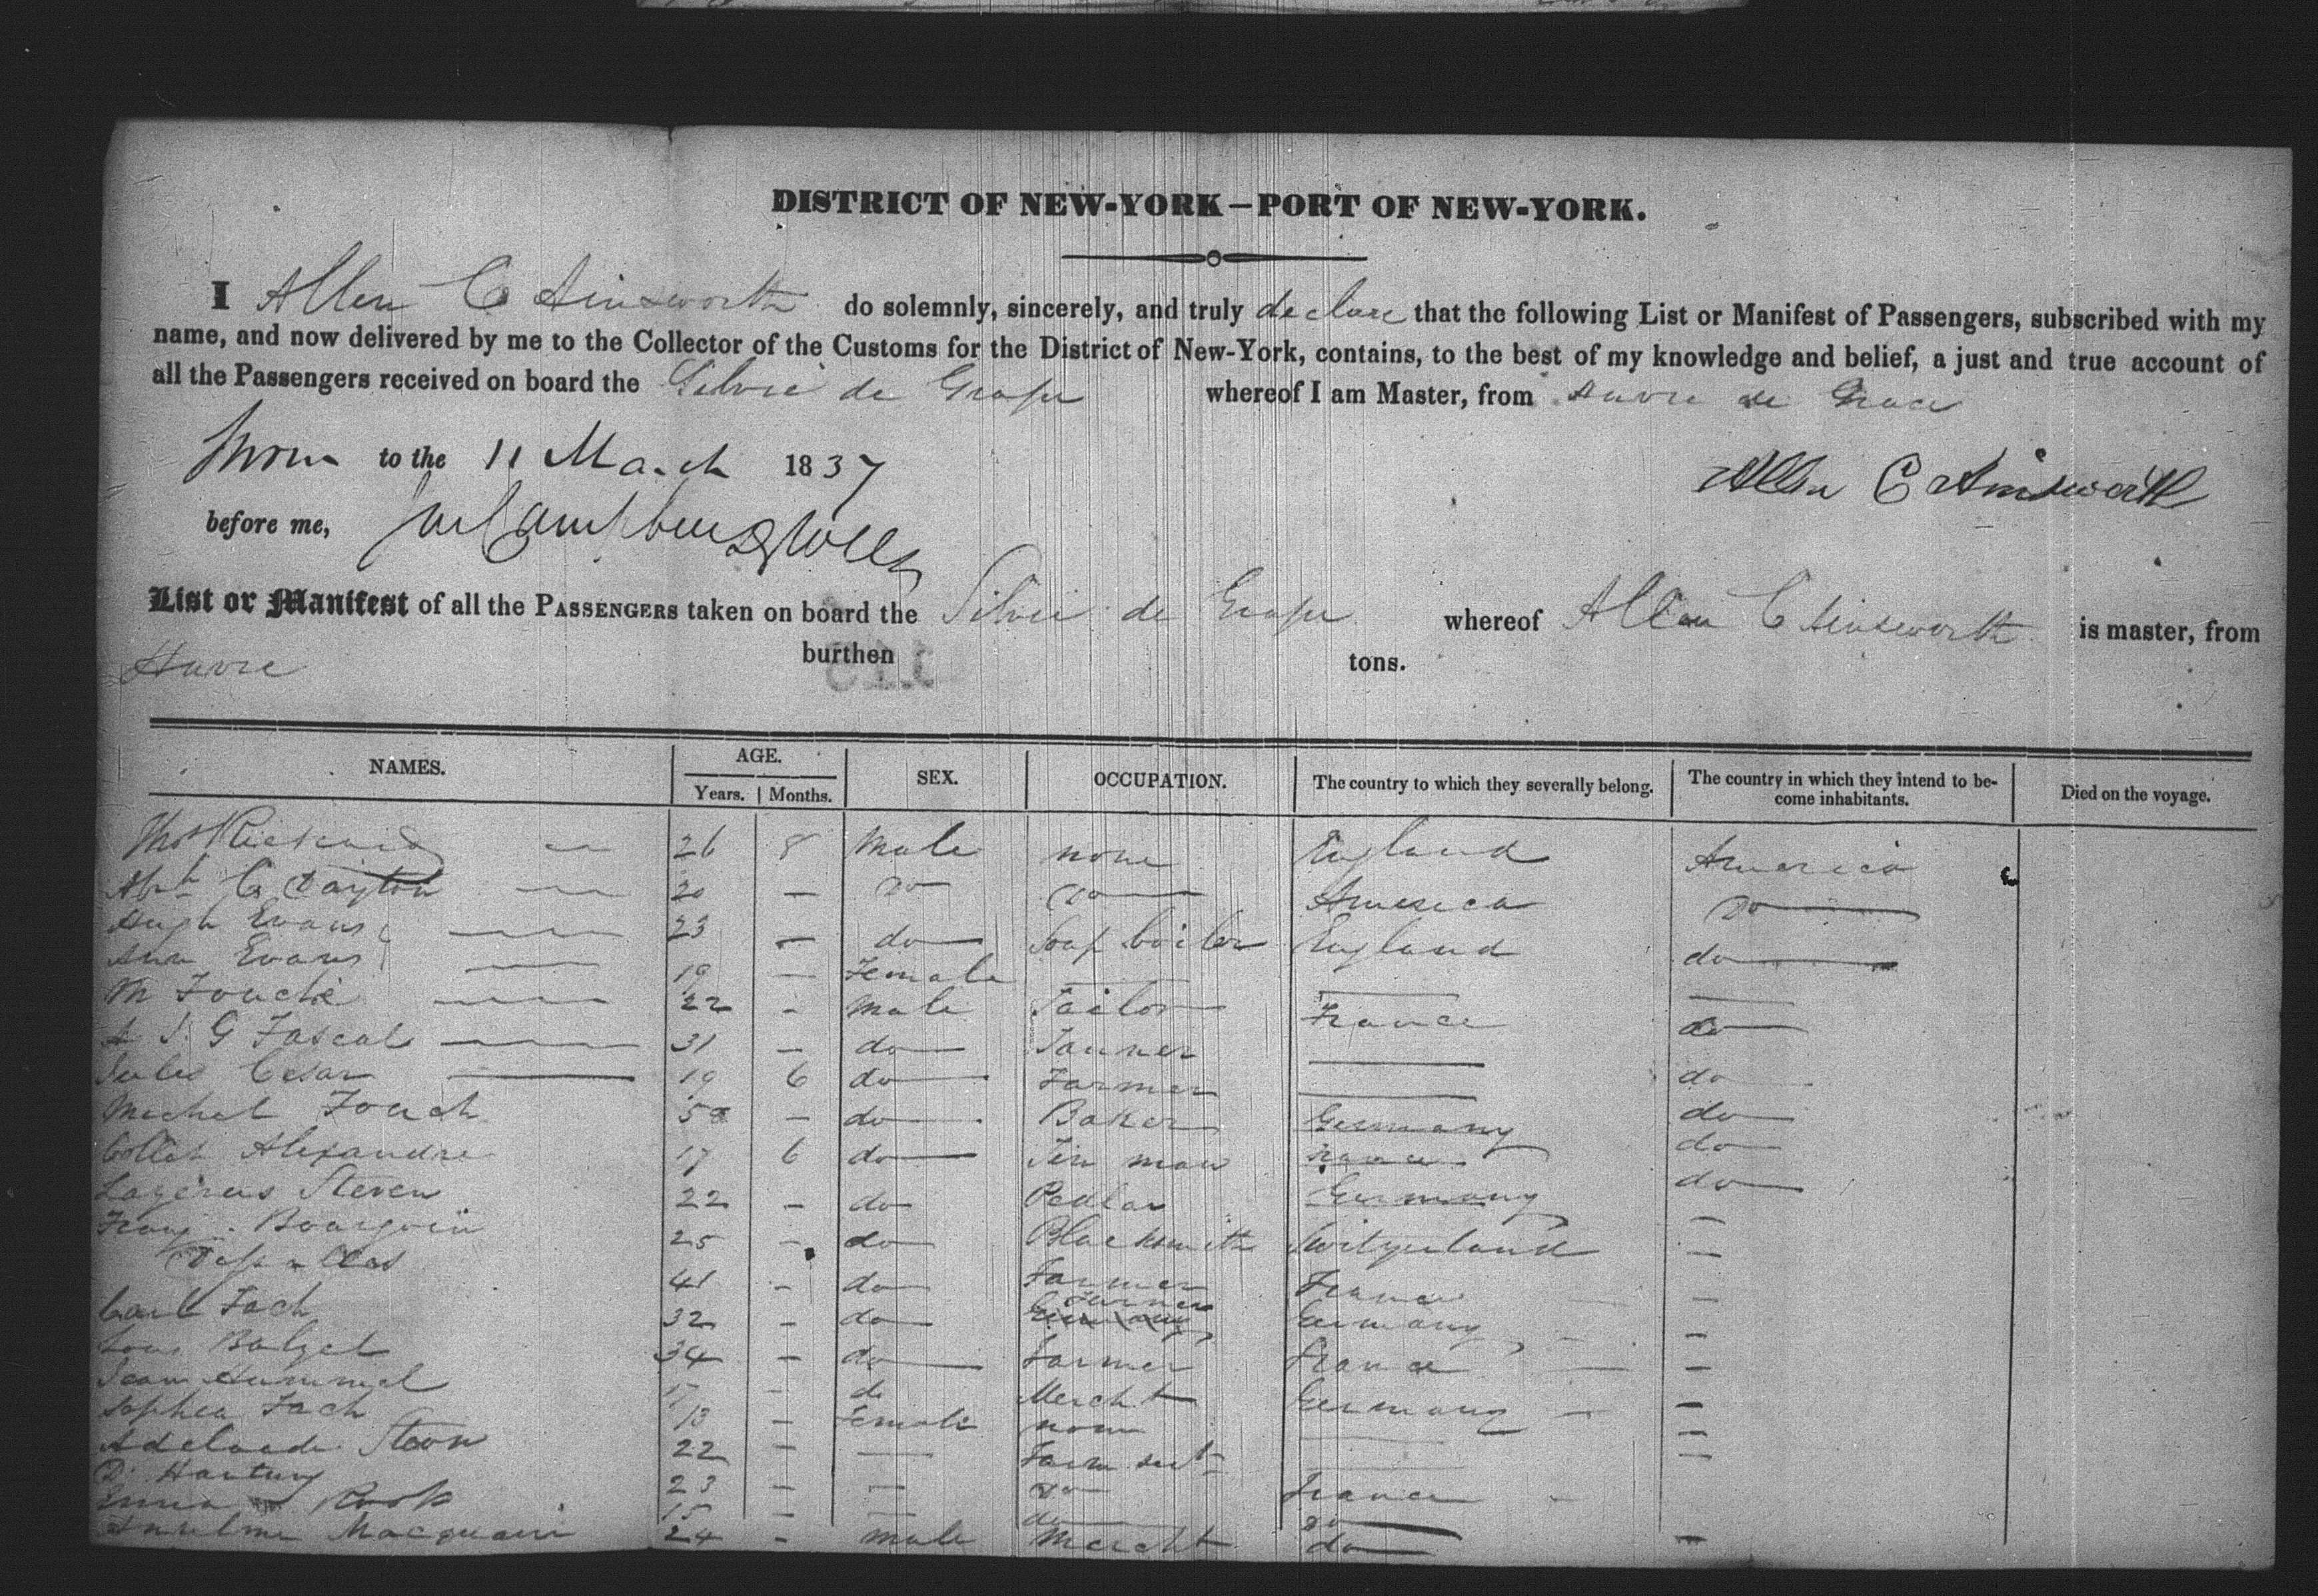 DISTRICT OF NEW-YORK—PORT OF NEW-YORK.
I Allen C Ainsworth do solemnly, sincerely, and truly declare that the following List or Manifest of Passengers, subscribed with my
name, and now delivered by me to the Collector of the Customs for the District of New-York, contains, to the best of my knowledge and belief, a just and true account of
all the Passengers received on board the Silvie de Grasse whereof I am Master, from Havre de Grace
Sworn to the 11 March 1837
Allen C Ainsworth
before me,
List or Manifest of all the PASSENGERS taken on board the Silvie de Grasse whereof Allen C Ainsworth is master, from
Havre burthen tons.
NAMES. AGE. SEX. OCCUPATION. The country to which they severally belong. The country in which they intend to be- Died on the voyage.
Years. Months. come inhabitants.
Thos 26 8 Male none England America
Abm C Dayton 20 — Do Do America Do
Hugh Evans 23 — do Soap boiler England do
Ann Evans 19 — Female
M Fouche 22 - Male Tailor France do
A J. G Pascal 31 — do Tanner do
Jules Cesar 19 6 do Farmer do
Michel Fouch 58 — do Baker Germany do
Collet Alexandre 17 6 do Tin man France do
Lazerus Steven 22 - do Pedlar Germany —
Bourgoin 25 - do Blacksmith Switzerland —
41 - do Farmer France —
Carl Fach 32 - do Farmer Germany —
Louis Balzel 34 — do Farmer France —
Jean Hummel 17 - do Mercht Germany —
Sophea Fach 13 - Female none —
Adelaide Steven 22 - — Farm sert —
D. Hartung 23 - — Do France
Rook 15 - — do Do
Anselme Macquair 24 - male Mercht do —